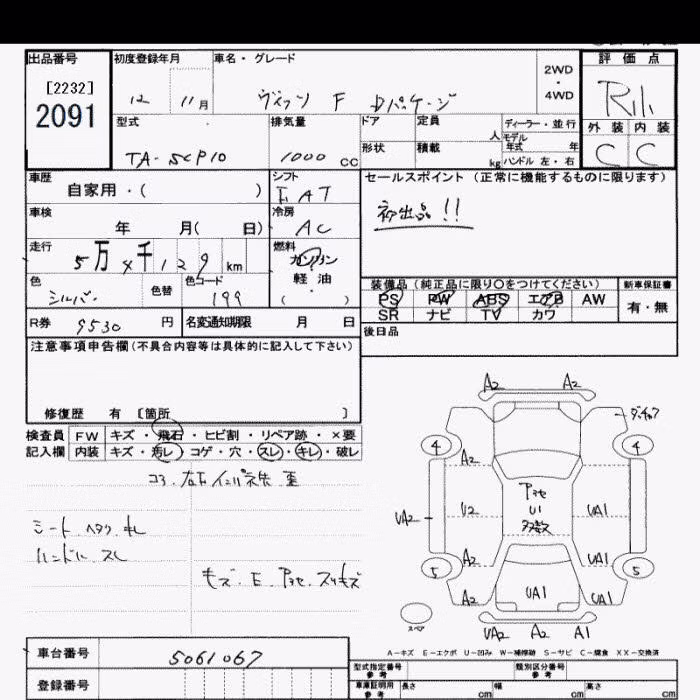 出品番号 初度登録年月 車名・グレード 2WD・4WD 評価点
[2232]
2091
12 11月 ヴィッツ F Dパッケージ
型式 排気量 ドア 定員 人 ディーラー・並行 外装 内装
モデル年式 年
形状 積載 kg ハンドル 左・右
TA-SCP10 1000 CC C C
車歴 自家用・( ) シフト FAT セールスポイント(正常に機能するものに限ります)
初出品!!
車検 年 月( 日) 冷房 AC
走行 5万4千129km 燃料 ガソリン・軽油・( )
色 シルバー 色替 色コード 199
装備品(純正品に限り○をつけてください) 新車保証書
PS PW ABS エアB AW 有・無
SR ナビ TV カワ
R券 9530円 名変通知期限 月 日 後日品
注意事項申告欄(不具合内容等は具体的に記入して下さい)
修復歴 有 [箇所 ]
検査員記入欄 FW キズ・飛石・ヒビ割・リペア跡・×要
内装 キズ・汚レ・コゲ・穴・スレ・キレ・破レ
シート ヘタリ
ハンドル スレ
A2 A2
4 4
A2
UA2 U2 U1 UA1
A2 UA1
5 5
A2 UA1 UA1
スペア
UA2 A2 A1
A-キズ E-エクボ U-凹み W-補修跡 S-サビ C-腐食 XX-交換済
車台番号 5061067
登録番号
型式指定番号 参考 類別区分番号 参考
車庫証明用 参考 長さ cm 幅 cm 高さ cm